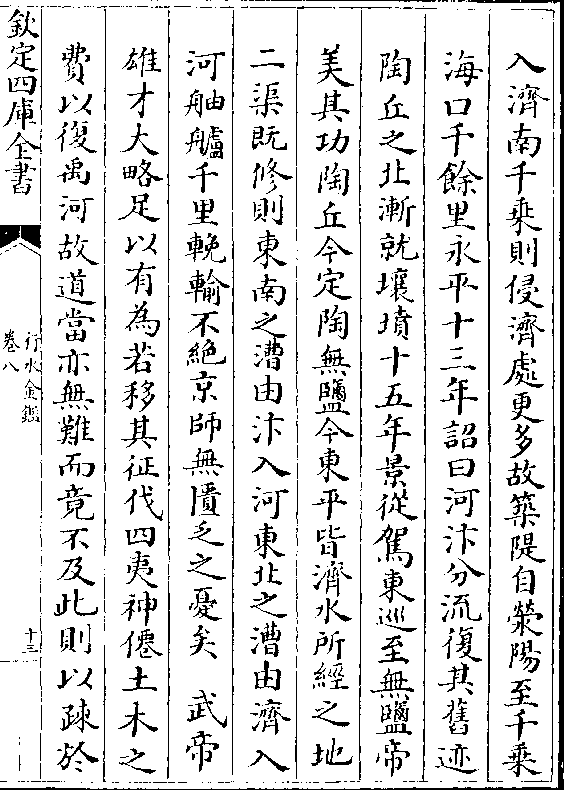 入濟南千乗則侵濟處更多故築隄自滎陽至千乗
海口千餘里永平十三年詔曰河汴分流復其舊迹
陶丘之北漸就壤墳十五年景從駕東巡至無鹽帝
美其功陶丘今定陶無鹽今東平皆濟水所經之地
二渠既修則東南之漕由汴入河東北之漕由濟入
河舳艫千里輓輸不絶京師無匱乏之憂矣　武帝
雄才大略足以有為若移其征伐四夷神僊土木之
費以復禹河故道當亦無難而竟不及此則以疎於
欽定四庫全書
行水金鑑
卷八
十三